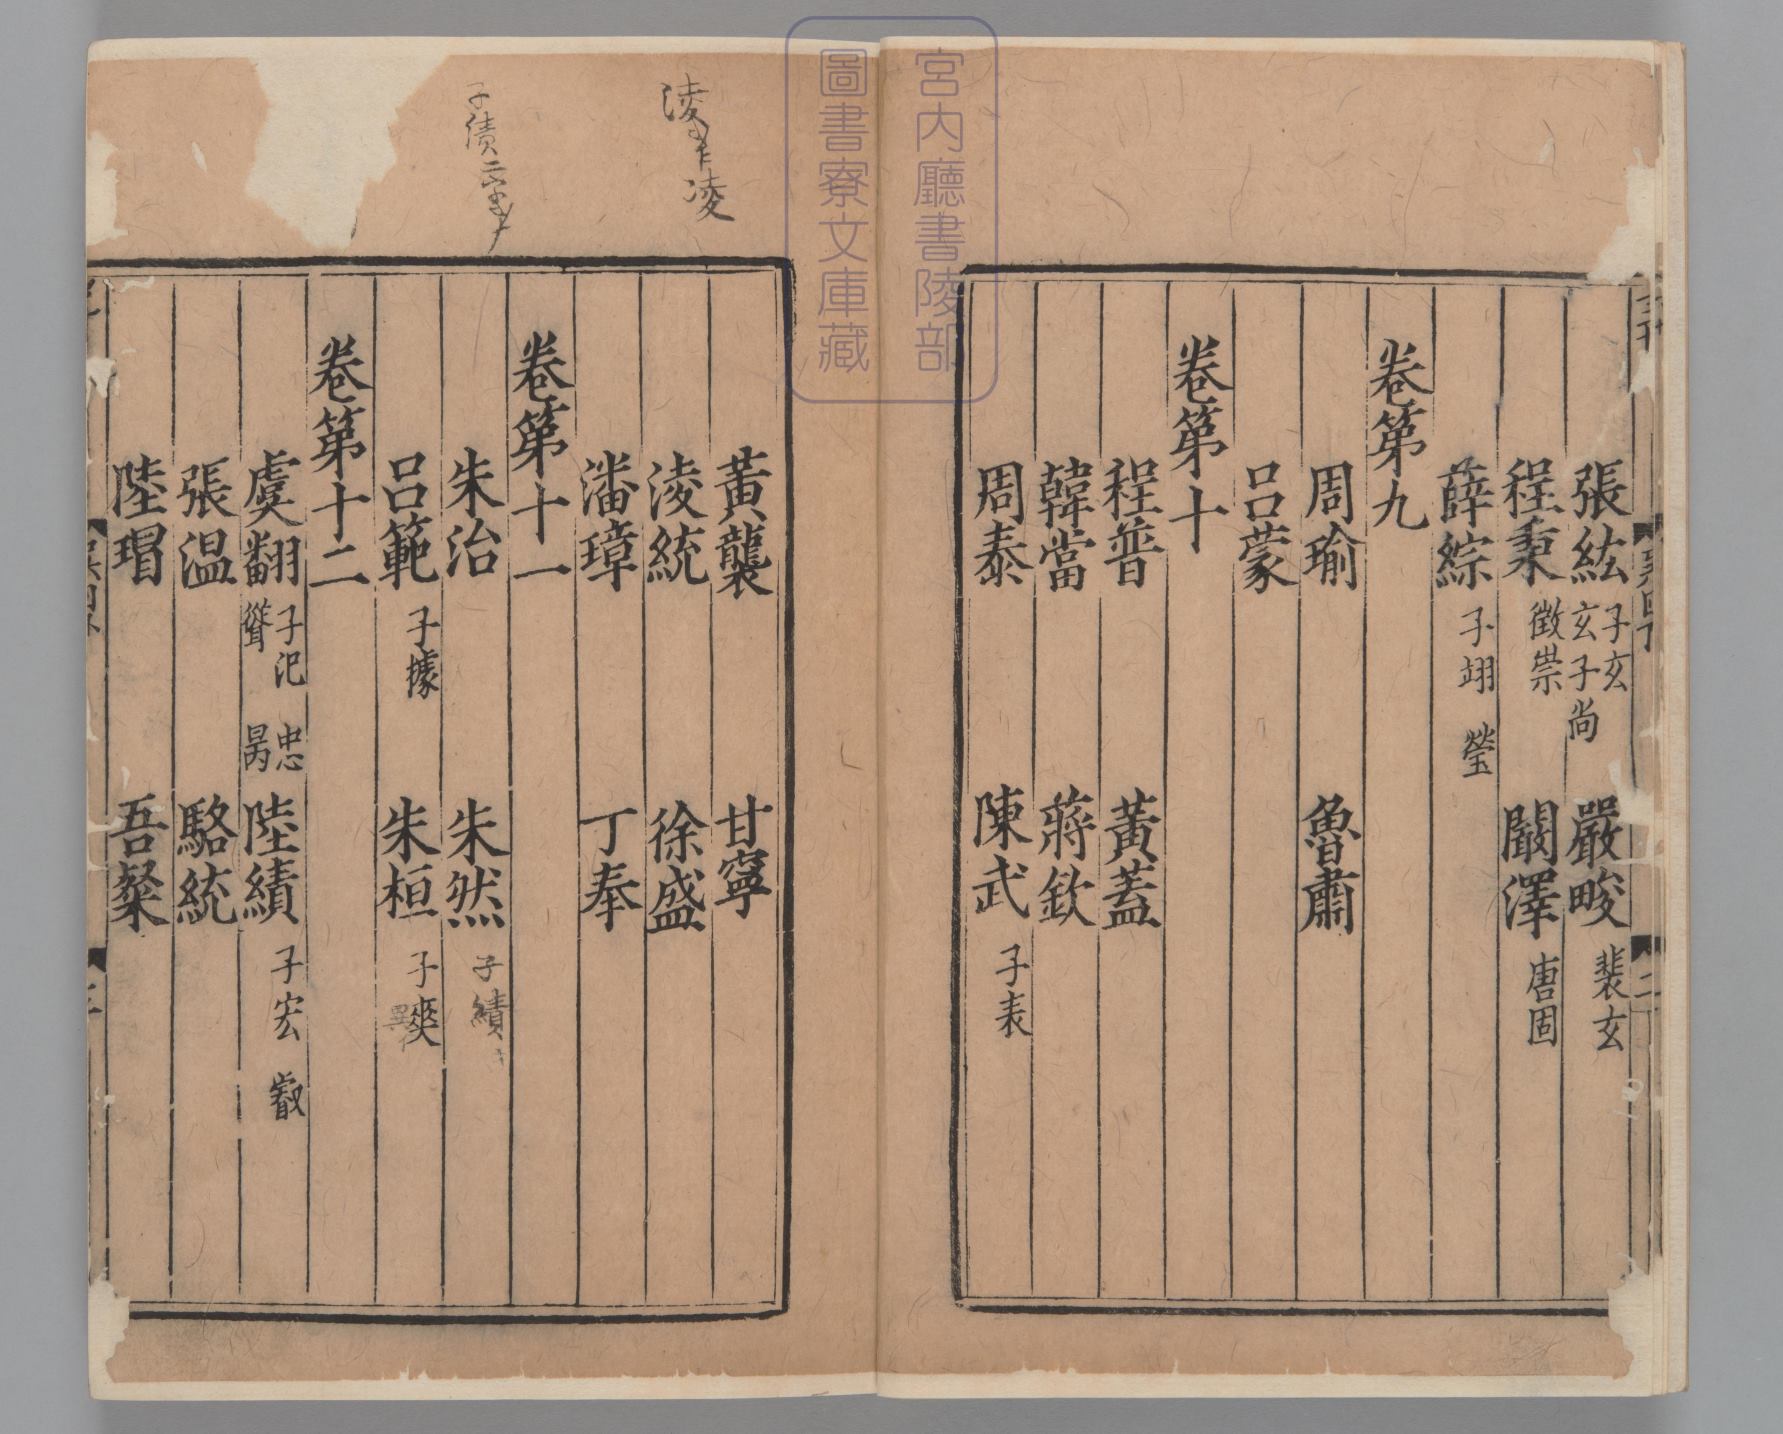 張紘 子玄 玄子尚 嚴畯 裴玄
程秉 徵崇 闞澤 唐固
薛綜 子翊 瑩
卷第九
周瑜 魯肅
呂蒙
卷第十
程普 黃蓋
韓當 蔣欽
周泰 陳武 子表
黃襲 甘寧
淩統 徐盛
潘璋 丁奉
卷第十一
朱治 朱然 子績
呂範 子據 朱桓 子
卷第十二
虞翻 子汜 忠 聳 昺 陸績 子宏 叡
張温 駱統
陸瑁 吾粲
淩 凌
子績二
宮內廳書陵部
圖書寮文庫藏